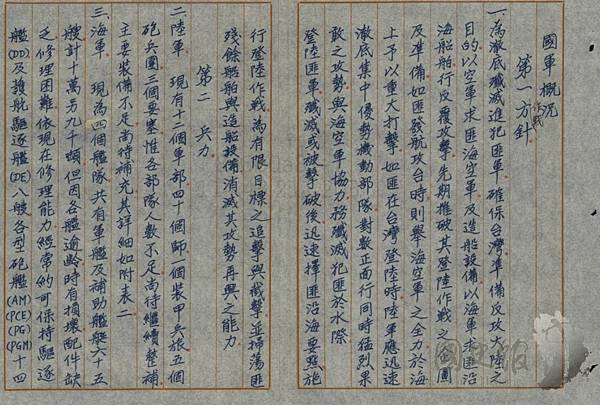 國軍概況
第一 作戰方針
一、為澈底殲滅進犯匪軍確保台灣準備反攻大陸之
目的以空軍求匪海空軍及造船設備以海軍求匪沿
海船舶行反覆攻擊先期摧破其登陸作戰之企圖
及準備如匪發航攻台時則舉海空軍之全力於海
上予以重大打擊如匪在台灣登陸時陸軍應迅速
澈底集中優勢機動部隊對數正面行同時猛烈果
敢之攻勢與海空軍協力務殲滅犯匪於水際
登陸匪軍殲滅或被擊破後迅速擇匪沿海要點施
行登陸作戰為有限目標之追擊與截擊並掃蕩匪
殘餘船舶與造船設備消滅其攻勢再興之能力
第二 兵力
二、陸軍 現有十二個軍部四十個師一個裝甲兵旅五個
砲兵團三個要塞惟各部隊人數不足尚待繼續整補
主要裝備不足尚待補充其詳細如附表二
三、海軍 現為四個艦隊共有軍艦及補助艦艇六十五
艘計十萬另九千噸但因各艦逾齡時有損壞配件缺
乏修理困難依現在修理能力經常約可保持驅逐
艦(DD)及護航驅逐艦(DE)八艘各型砲艦(AM)(PCE)(PG)(PGM)十四